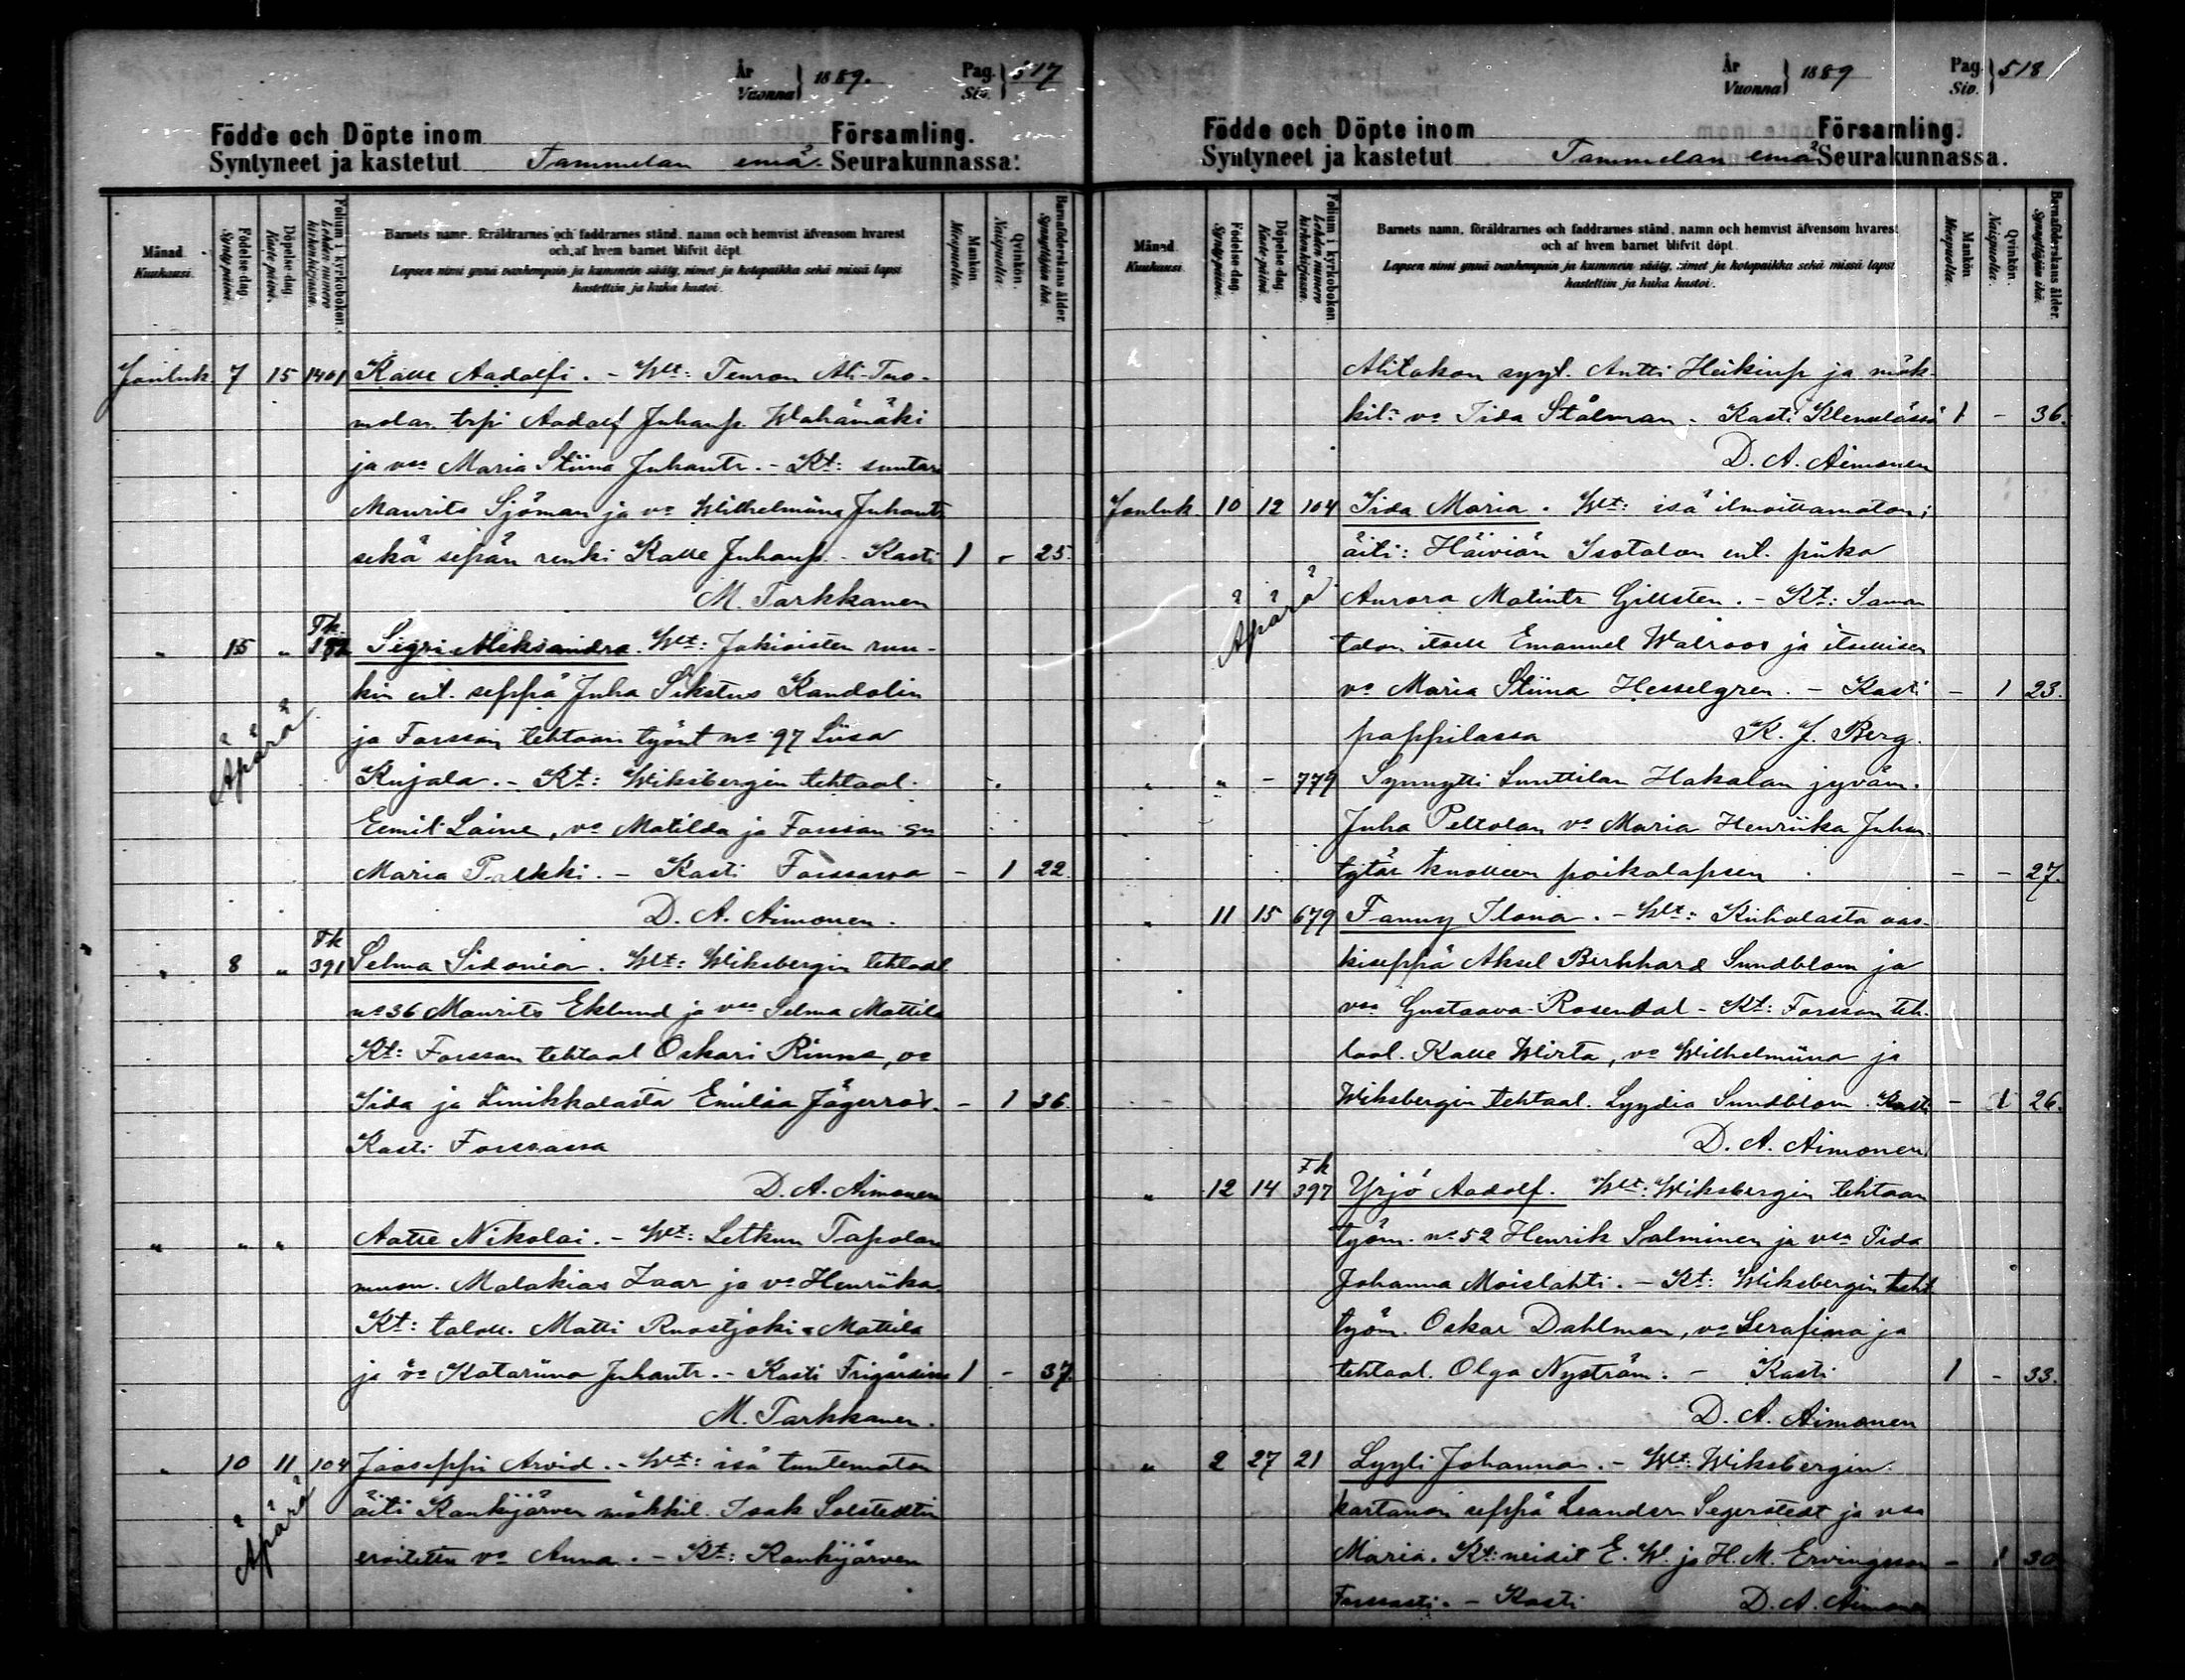 År
Vuonna } 1889. Pag. Siv. } 517
Födde och Döpte inom Församling.
Syntyneet ja kastetut Tammelan emä Seurakunnassa.
Månad. Kuukausi.
Födelse-dag. Synty-päivä.
Döpelse-dag. Kaste-päivä.
Folium i kyrkobokon. Lehden numero kirkonkirjassa.
Barnets namn, föräldrarnes och faddrarnes stånd, namn och hemvist äfvensom hvarest
och af hvem barnet blifvit döpt.
Lapsen nimi ynnä vanhempain ja kummein sääty, nimet ja kotopaikka sekä missä lapsi
kastettiin ja kuka kastoi.
Mankön Miespuolia.
Qvinkön. Naispuolia.
Barnaföderskans ålder. Synnyttäjän ikä.
Jouluk. 7 15 1401 Kalle Aadolfi. - Wt: Teuron Ali-Tuo-
molan trpi Aadolf Juhanp. Wähämäki
ja vo Maria Stiina Juhantr. - Kt: suntio
Maurits Sjöman ja vo Wilhelmiina Juhantr
sekä sepän renki Kalle Juhanp. - Kasti 1 - 25.
M. Tarkkanen
" 15 " Tk. Sigri Aleksandra. Wt: Jokioisten ruu-
kin ent. seppä Juha Sikstus Kandolin
Äpärä ja Forssan tehtaan työnt no 97 Liisa
Kujala. - Kt: Wiksbergin tehtaal.
Eemil Laine, vo Matilda ja Forssan
Maria Palkki. - Kasti Forssassa - 1 22.
D. A. Aimonen.
" 8 " Tk 391 Selma Sidonia. Wt: Wiksbergin tehtaal
no 36 Maurits Eklund ja vo Selma Mattila
Kt: Forssan tehtaal Oskari Rinne, vo
Iida ja Linikkalasta Emilia Jägerroos. - 1 36.
Kasti Forssassa
D. A. Aimonen
" " " Aatte Nikolai. - Wt: Letkun Tapolan
muon. Malakias Zaar ja vo Henriika
Kt: taloll. Matti Ruostjoki Mattila
ja vo Katariina Juhantr. - Kasti 1 - 37.
M. Tarkkanen.
" 10 11 104 Jooseppi Arvid. - Wt: isä tuntematon
Äpärä äiti Kaukijärven mökkil. Isak Solstedtin
eroitettu vo Anna. - Kt: Kaukijärven
År
Vuonna } 1889 Pag. Siv. } 518
Födde och Döpte inom Församling.
Syntyneet ja kastetut Tammelan emä Seurakunnassa.
Månad Kuukausi.
Födelse-dag. Synty-päivä.
Döpelse-dag. Kaste-päivä.
Folium i kyrkobokon. Lehden numero kirkonkirjassa.
Barnets namn, föräldrarnes och faddrarnes stånd, namn och hemvist äfvensom hvarest
och af hvem barnet blifvit döpt.
Lapsen nimi ynnä vanhempain ja kummein sääty, nimet ja kotopaikka sekä missä lapsi
kastettiin ja kuka kastoi.
Mankön Miespuolia.
Qvinkön. Naispuolia.
Barnaföderskans ålder. Synnyttäjän ikä.
Alitalon Antti Heikinp ja mök-
kil. vo Iida Stålman. Kasti Klemelässä 1 - 36.
D. A. Aimonen
Jouluk. 10 12 104 Iida Maria. Wt: isä ilmoittamaton;
äiti: Häiviän Isotalon ent. piika
Äpärä Aurora Matintr Gillsten. - Kt: Saman
talon itsell Emanuel Walroos ja itsellisen
vo Maria Stiina Hesselgren. - Kasti - 1 23.
pappilassa K. J. Berg.
" " - 779 Synnytti Sunttilan Hakalan jyväm.
Juha Peltolan vo Maria Henriika Juhan
tytär kuolleen poikalapsen - - 27.
" 11 15 679 Fanny Ilona. - Wt: Kuhalasta vas-
kiseppä Aksel Birkhard Sundblom ja
vo Gustaava Rosendal - Kt: Forssan teh-
taal. Kalle Wirta, vo Wilhelmiina ja
Wiksbergin tehtaal. Lyydia Sundblom. Kasti - 1 26.
D. A. Aimonen
" 12 14 Tk 397 Yrjö Aadolf. Wt: Wiksbergin tehtaan
työm. no 52 Henrik Salminen ja vo Iida
Johanna Moislahti. - Kt: Wiksbergin teht
työm. Oskar Dahlman, vo Serafiina ja
tehtaal. Olga Nyström. - Kasti 1 - 33.
D. A. Aimonen
" 2 27 21 Lyyli Johanna. - Wt: Wiksbergin
kartanon seppä Leander Segerstedt ja vo
Maria. Kt: neidit E. W. ja H. M. Ervingsson - 1 30
Forssasti. - Kasti D. A. Aimonen